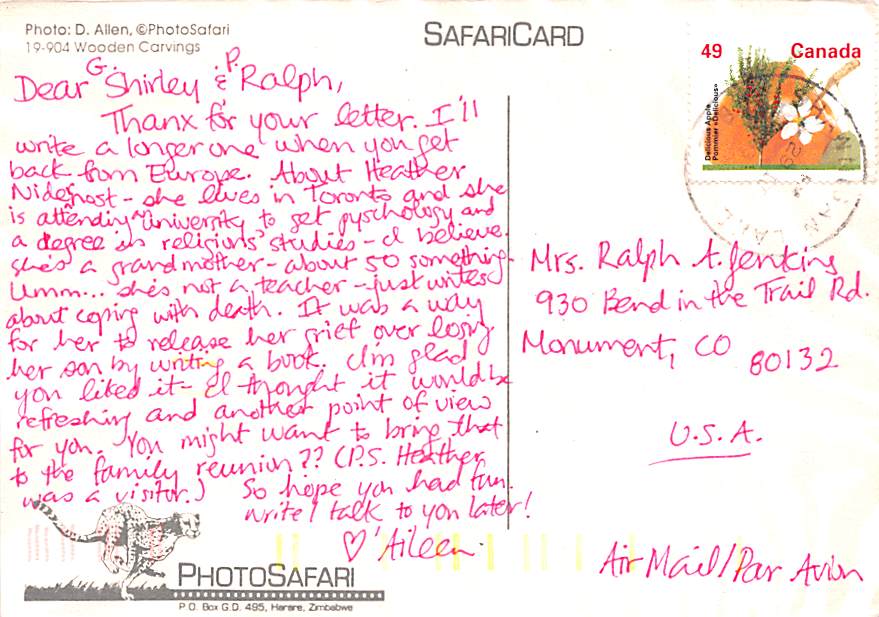 Photo: D. Allen, ©PhotoSafari
19-904 Wooden Carvings
SAFARICARD
49 Canada
Delicious Apple
Pommier «Delicious»
Dear G. Shirley & P. Ralph,
Thanx for your letter. I'll
write a longer one when you get
back from Europe. About Heather
Nidernost - she lives in Toronto and she
is attending University to get pyschology and
a degree in religions studies - I believe.
she's a grandmother - about 50 something.
Umm... she's not a teacher - just writes
about coping with death. It was a way
for her to release her grief over losing
her son by writing a book. I'm glad
you liked it - I thought it would be
refreshing and another point of view
for you. You might want to bring that
to the family reunion?? (P.S. Heather
was a visitor.) So hope you had fun.
Write / talk to you later!
♡ Aileen
Mrs. Ralph A. Jenkins
930 Bend in the Trail Rd.
Monument, CO 80132
U.S.A.
Air Mail/Par Avion
PHOTOSAFARI
P.O. Box G.D. 495, Harare, Zimbabwe